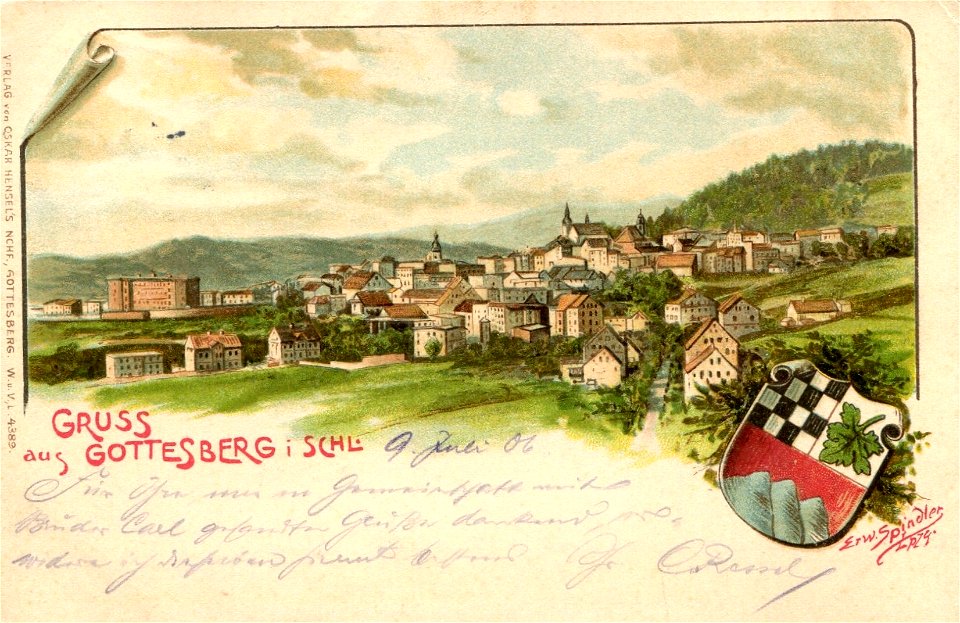 VERLAG von OSKAR HENSEL'S NCHF., GOTTESBERG. W.u.V.L. 4389.
GRUSS
aus GOTTESBERG i SCHL.
9. Juli 06
Für Ihre nur in Gemeinschaft mit
Bruder Carl gesandten Grüße dankend, er-
widere ich dieselben hiermit bestens
Erw. Spindler
LPZG.